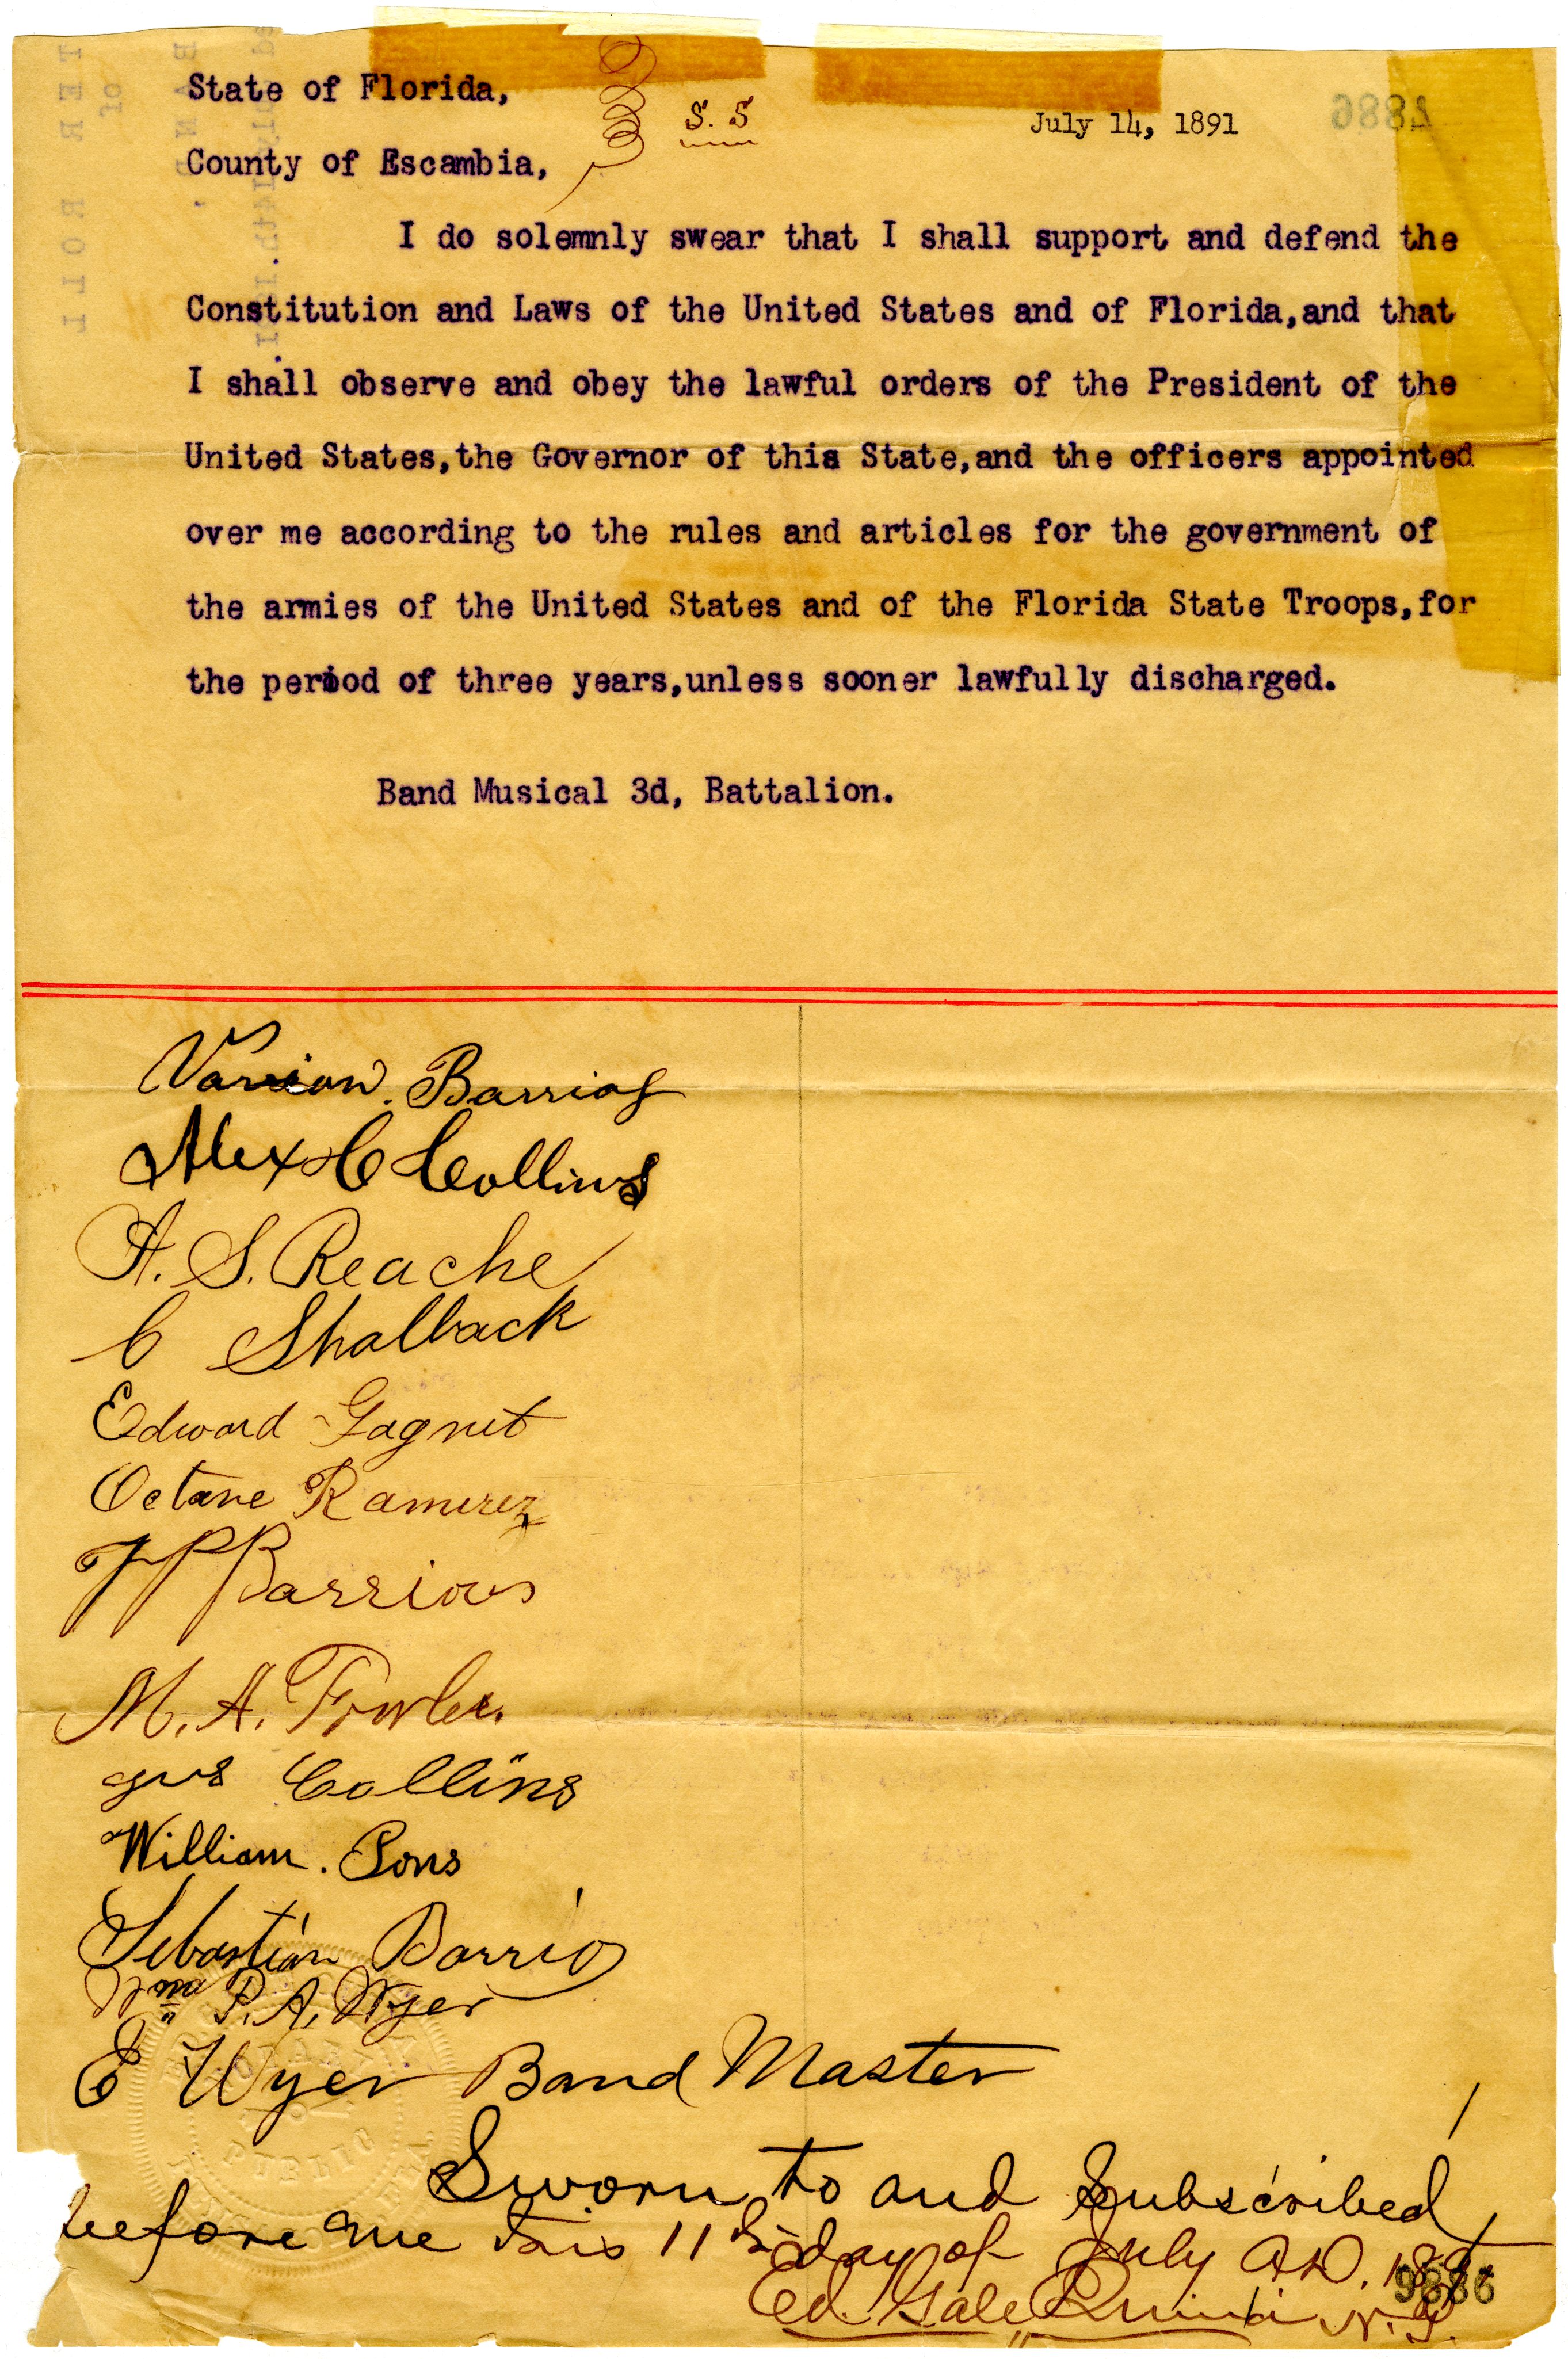 State of Florida,
S. S
July 14, 1891
County of Escambia,
I do solemnly swear that I shall support and defend the
Constitution and Laws of the United States and of Florida,and that
I shall observe and obey the lawful orders of the President of the
United States,the Governor of this State,and the officers appointed
over me according to the rules and articles for the government of
the armies of the United States and of the Florida State Troops,for
the period of three years,unless sooner lawfully discharged.
Band Musical 3d, Battalion.
Barrios
Alex C Collins
A. S. Reache
C Shalback
Edward Gagnet
Octave Ramirez
F P Barrios
M. A. Fowler.
Gus Collins
William. Pons
Sebastian Barrios
Wm P. A. Wyer
E Wyer Band Master
NOTARY
PUBLIC
Sworn to and Subscribed
before me this 11th day of July A.D. 1891
Ed. Gale Quina N.P.
9886